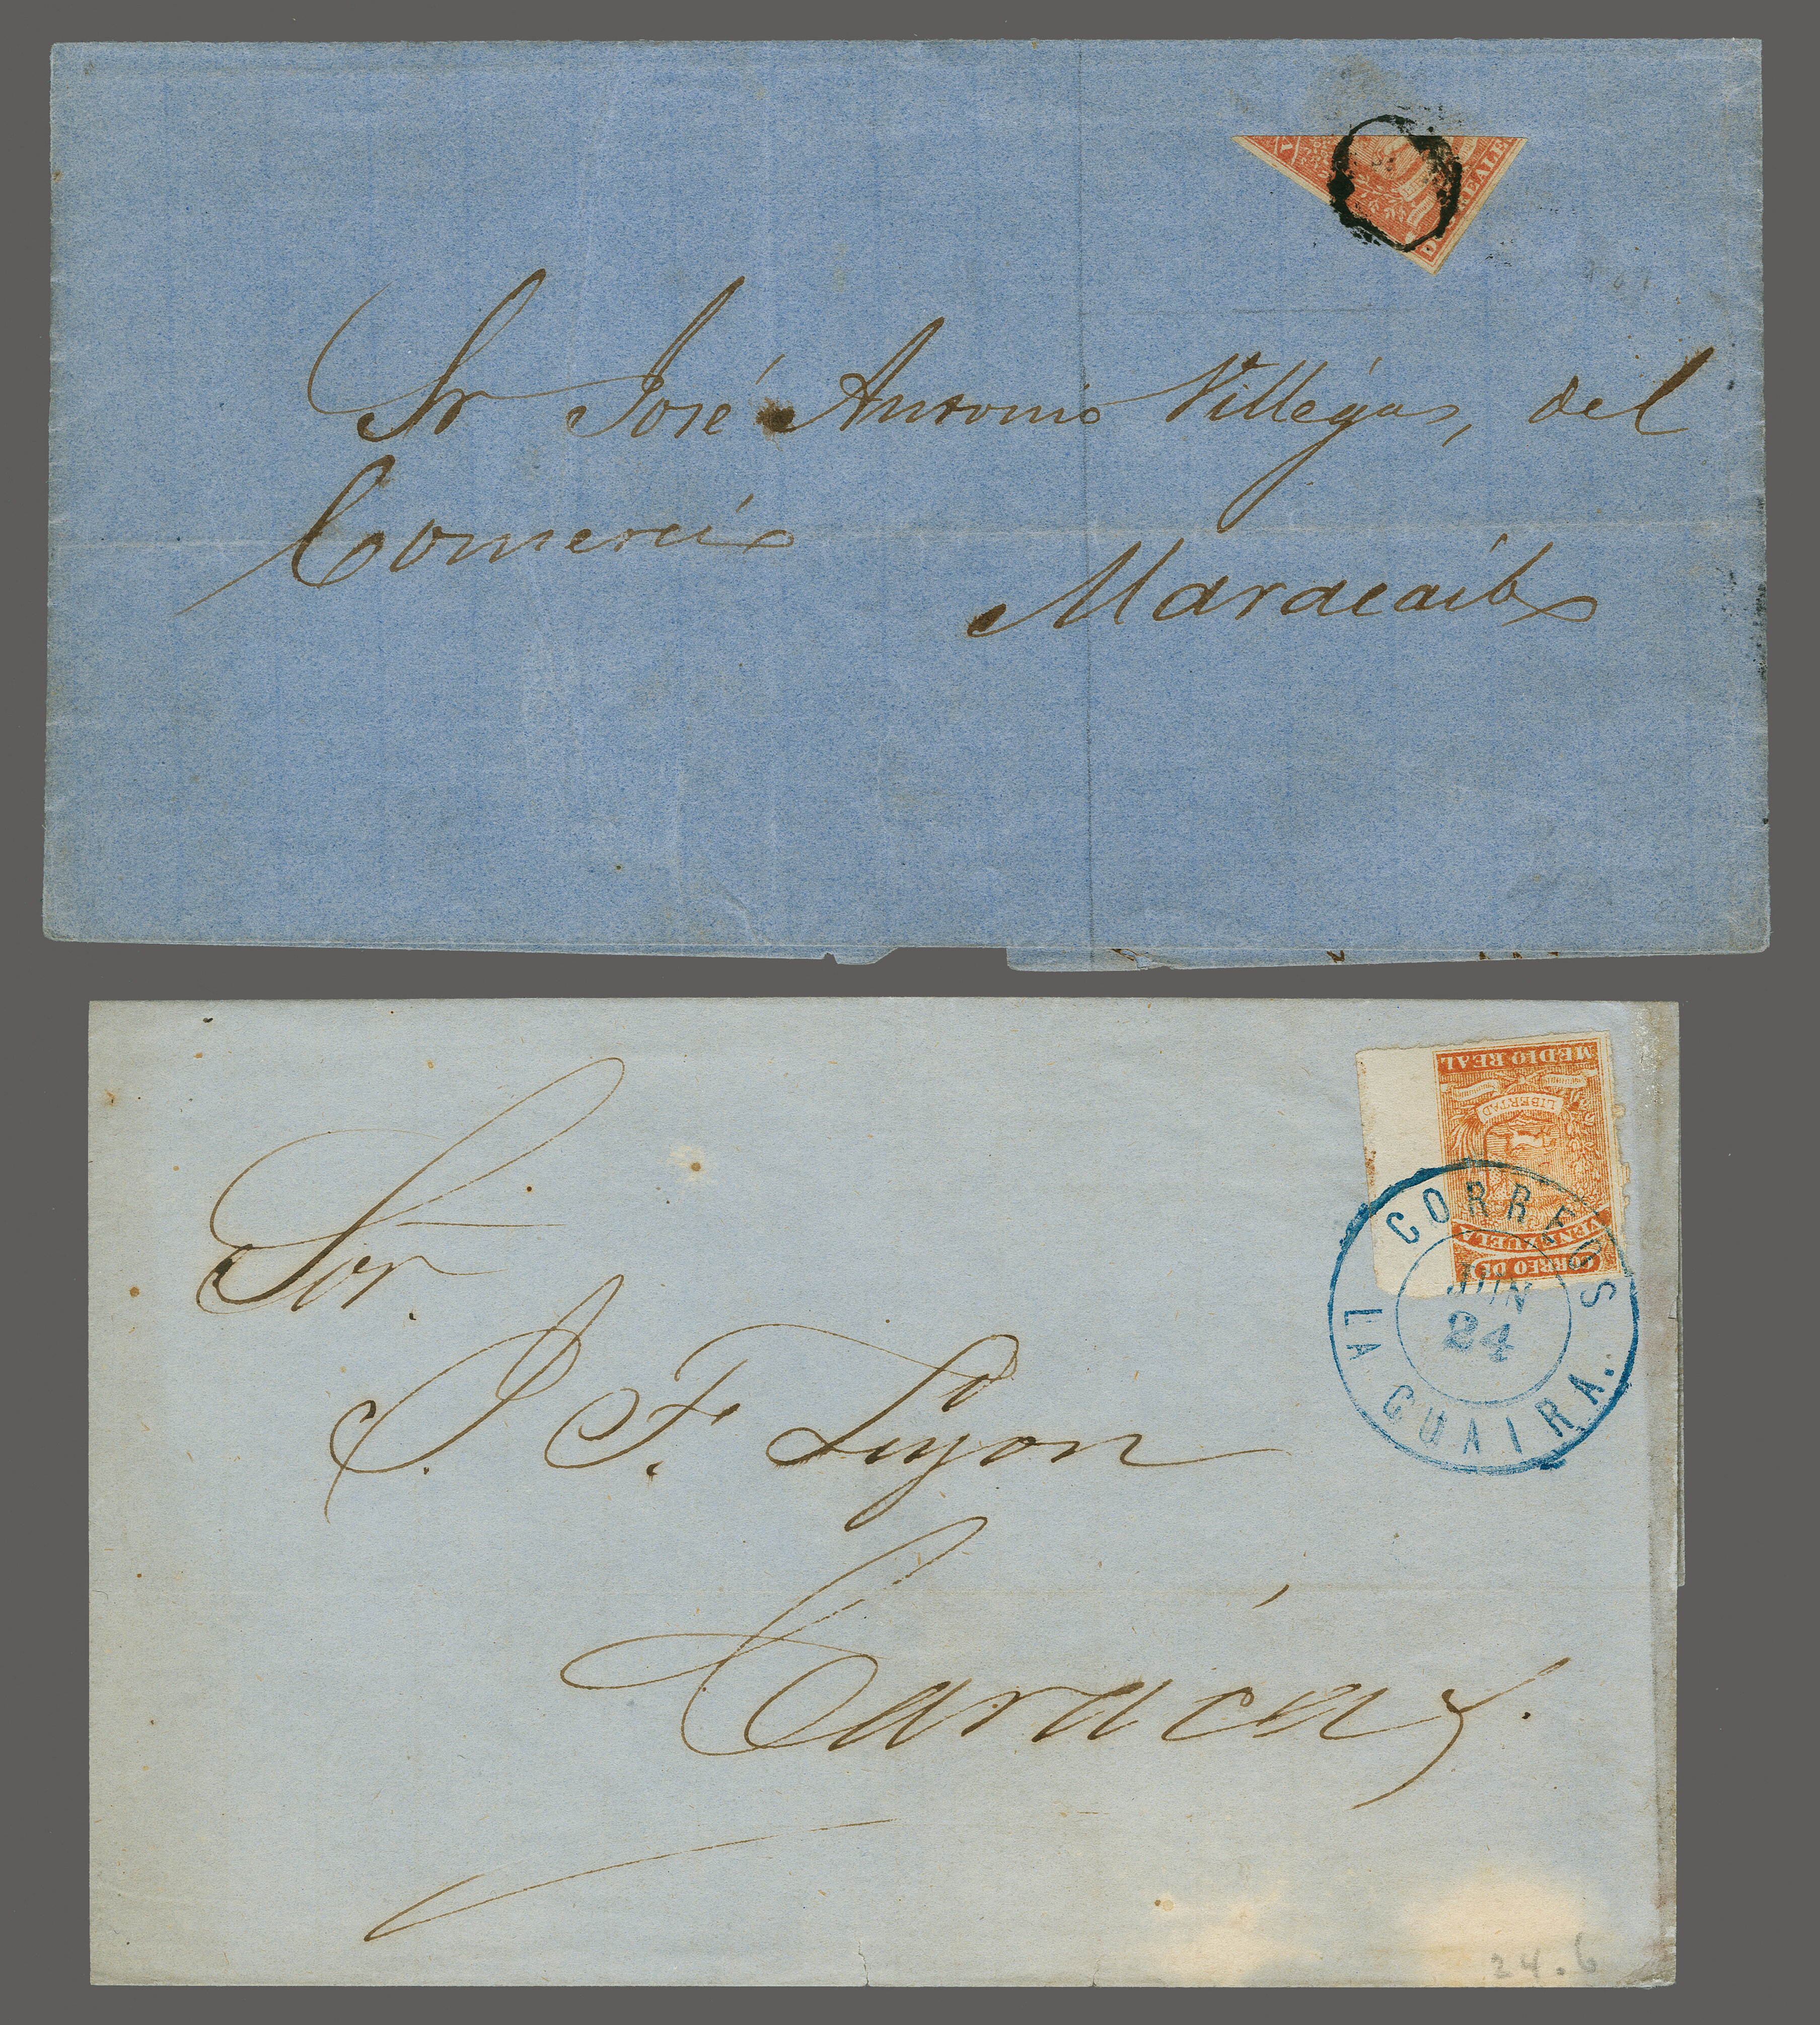 V
D REALE
Sr José Antonio Villégas, del
Comercio
Maracaibo
MEDIO REAL
LIBERTAD
VENEZUELA
CORREO DE
CORREOS
JUN
24
LA GUAIRA.
Sor.
J. F. Luyon
Carácas.
24.6